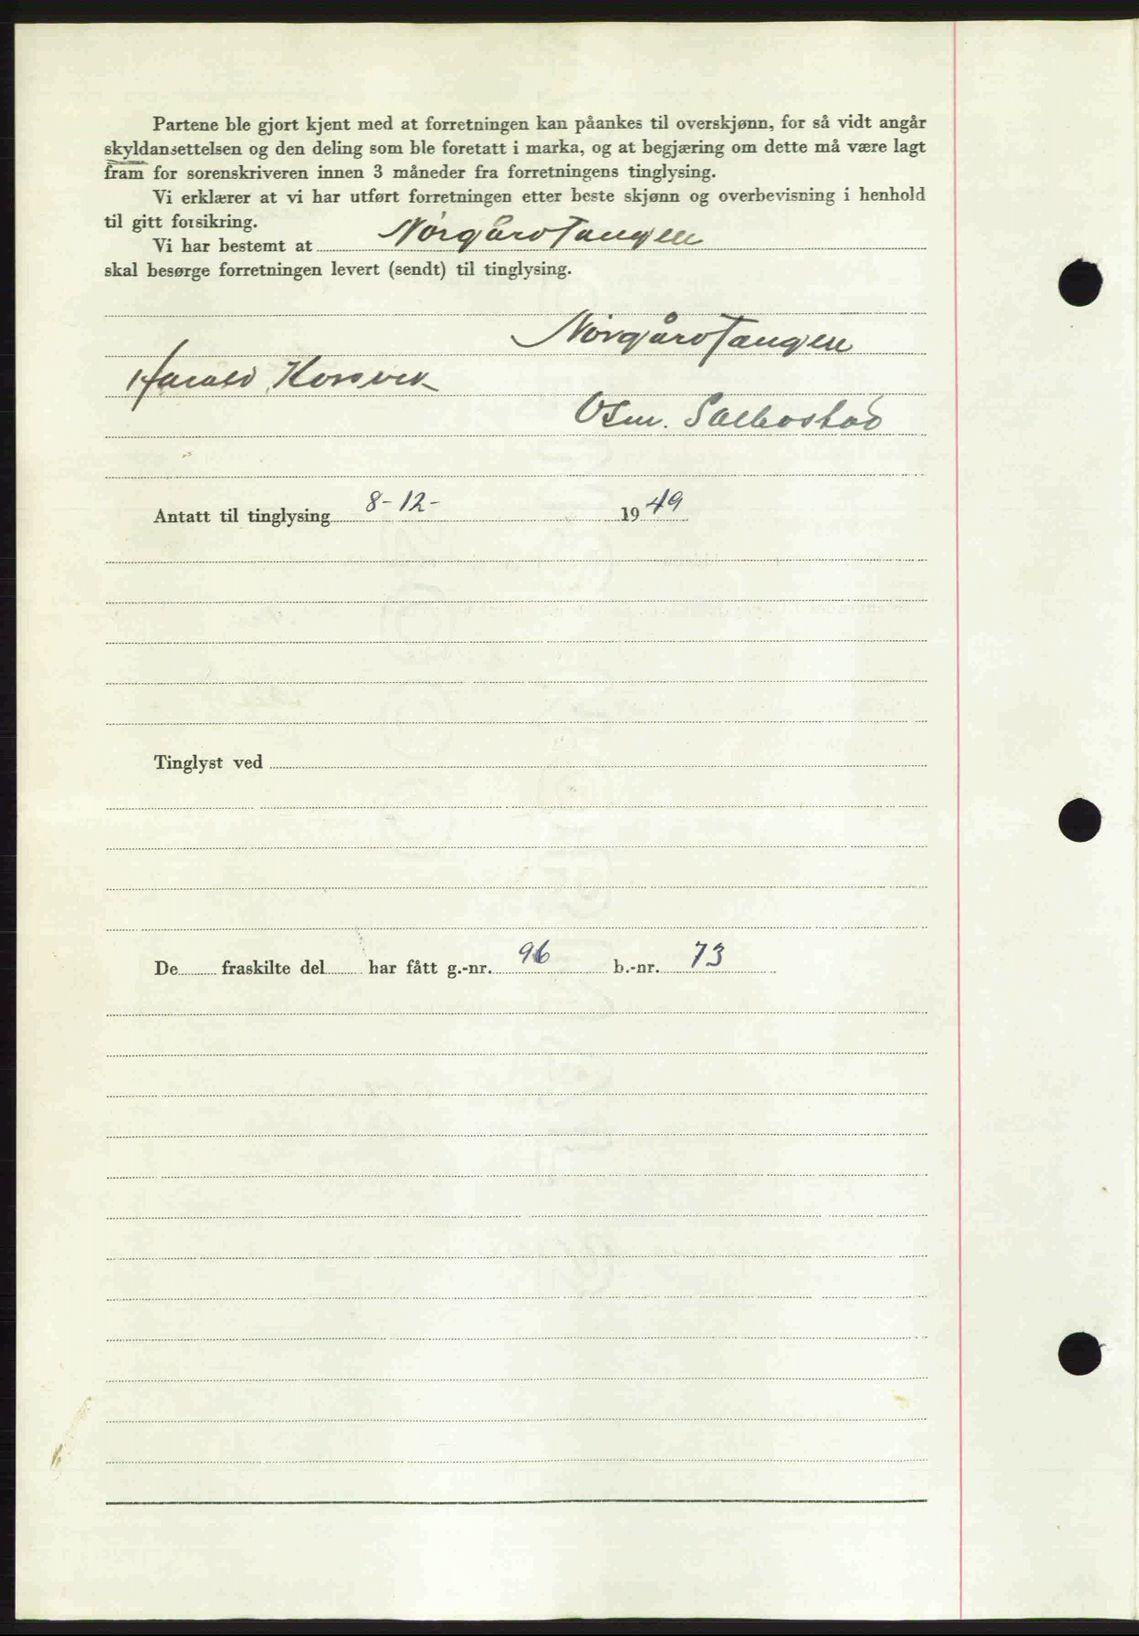 Partene ble gjort kjent med at forretningen kan påankes til overskjønn, for så vidt angår
skyldansettelsen og den deling som ble foretatt i marka, og at begjæring om dette må være lagt
fram for sorenskriveren innen 3 måneder fra forretningens tinglysing.
Vi erklærer at vi har utført forretningen etter beste skjønn og overbevisning i henhold
til gitt forsikring.
Vi har bestemt at Norgård Tangen
skal besørge forretningen levert (sendt) til tinglysing.
Norgård Tangen
Harald Korsvik
Osm. Sølbostad
Antatt til tinglysing 8-12- 1949
Tinglyst ved
De fraskilte del har fått g.-nr. 96 b.-nr. 73